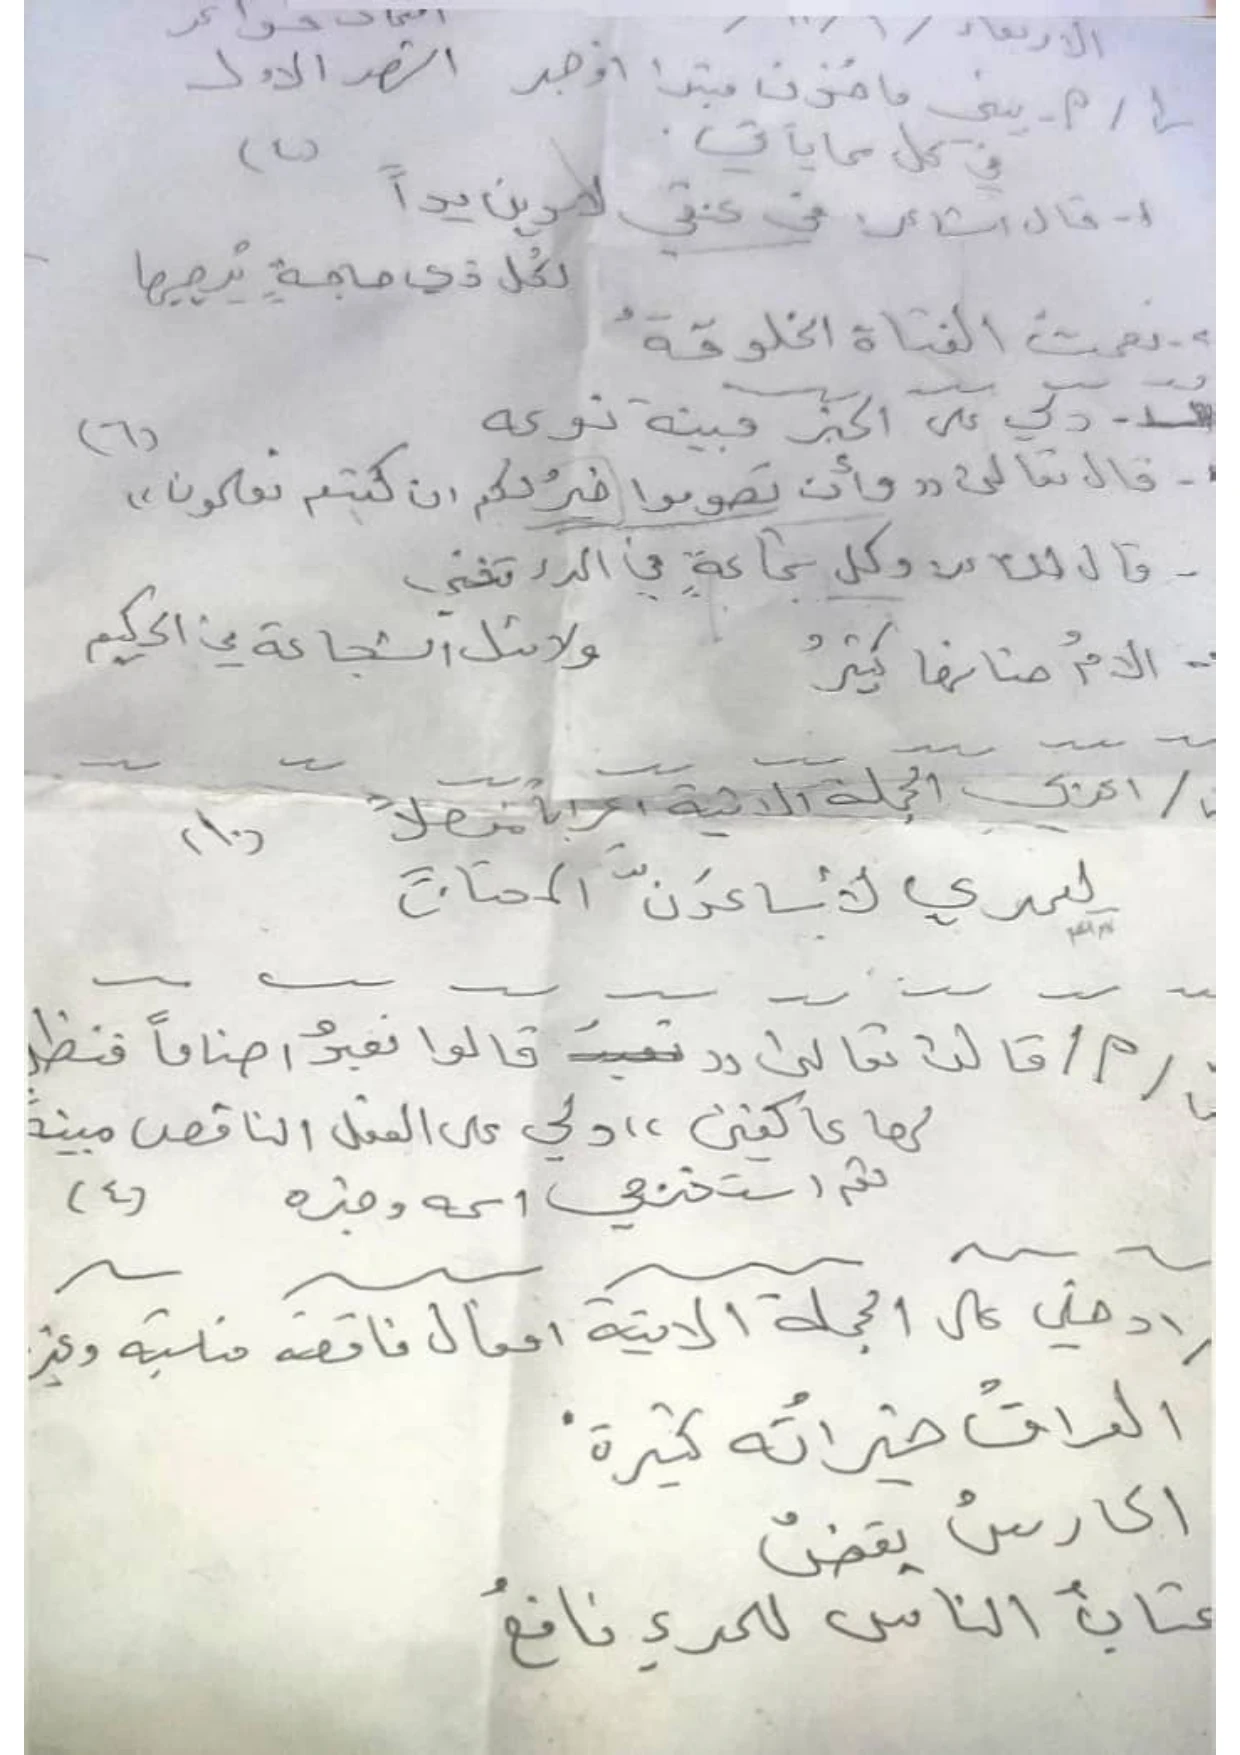 الاربعاء / ١ / ١١ / امتحان قواعد
س١/ م- بيني ما حُذف مبتدا أو خبر الشهر الاول
في كل مما يأتي:
١- قال الشاعر: في عنقي لاسوين يداً
لكُل ذي حاجةٍ يُرجيها
٢- نعمتْ الفتاة الخلوقةُ
- دلي على الخبر مبينة نوعه (٦)
- قال تعالى: (( وأن تصوموا خيرٌ لكم ان كنتم تعلمون ))
- قال الشاعر: وكل شجاعةٍ في المرء تغني
ولا مثل الشجاعة في الحكيم
- الامُ حنانها كثيرُ
/ اعربي الجملة الاتية اعراباً مفصلاً (١٠)
لعمري لأُساعدَنَّ المحتاجَ
/ م / قال تعالى: (( قالوا نعبدُ اصناماً فنظل
لها عاكفين )) دلي على الفعل الناقص مبينةً
ثم استخرجي اسمه وخبره (٤)
/ ادخلي على الجملة الاتية افعال ناقصة مناسبة وغير
العراقُ خيراتُه كثيرة
الحارسُ يقضٌ
عتابُ الناس للمرءِ نافعُ